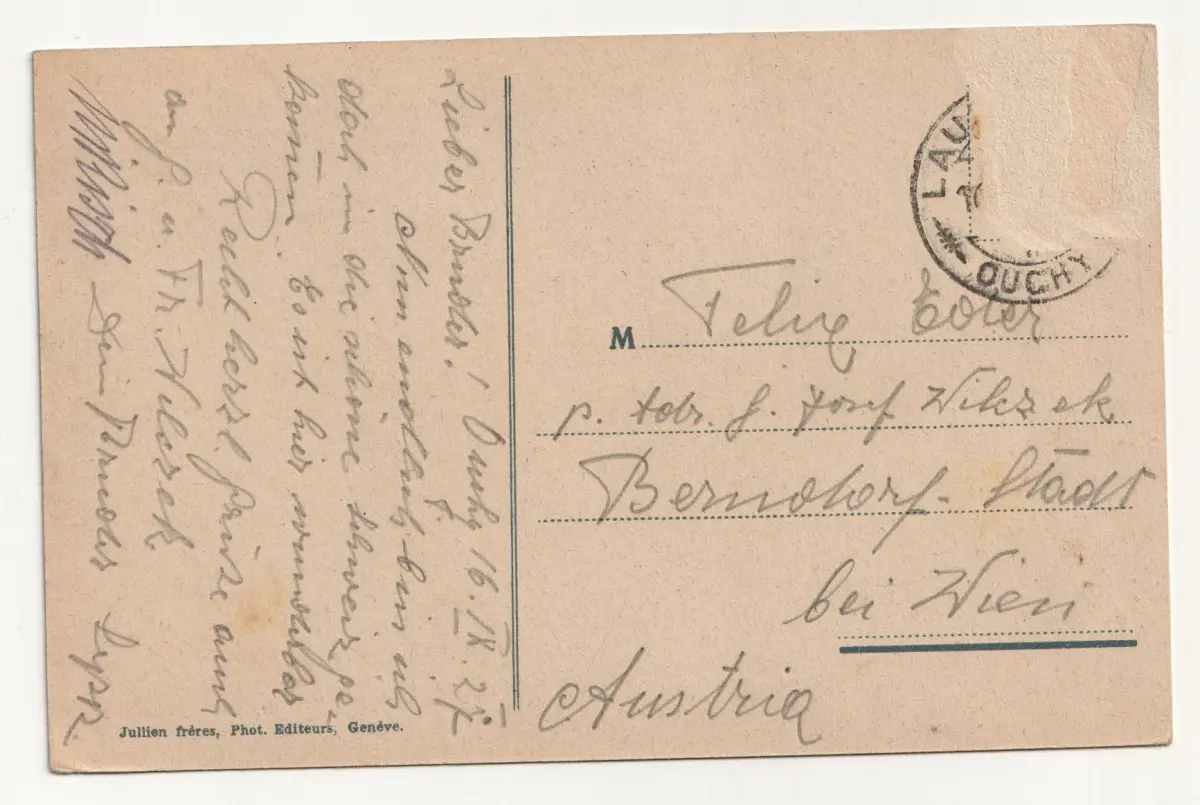 Lieber Bruder! Ouchy 16. IX. 27
Nun endlich bin ich
doch in die schöne Schweiz ge-
kom̄en. Es ist hier wunderbar
Recht herzl. Grüsse auch
an H. u. Fr. Wilczek
Dein Bruder
Jullien frères, Phot. Editeurs, Genève.
LAU
OUCHY
M Felix Eder
p. Adr. H. Josef Wilczek
Berndorf-Stadt
bei Wien
Austria